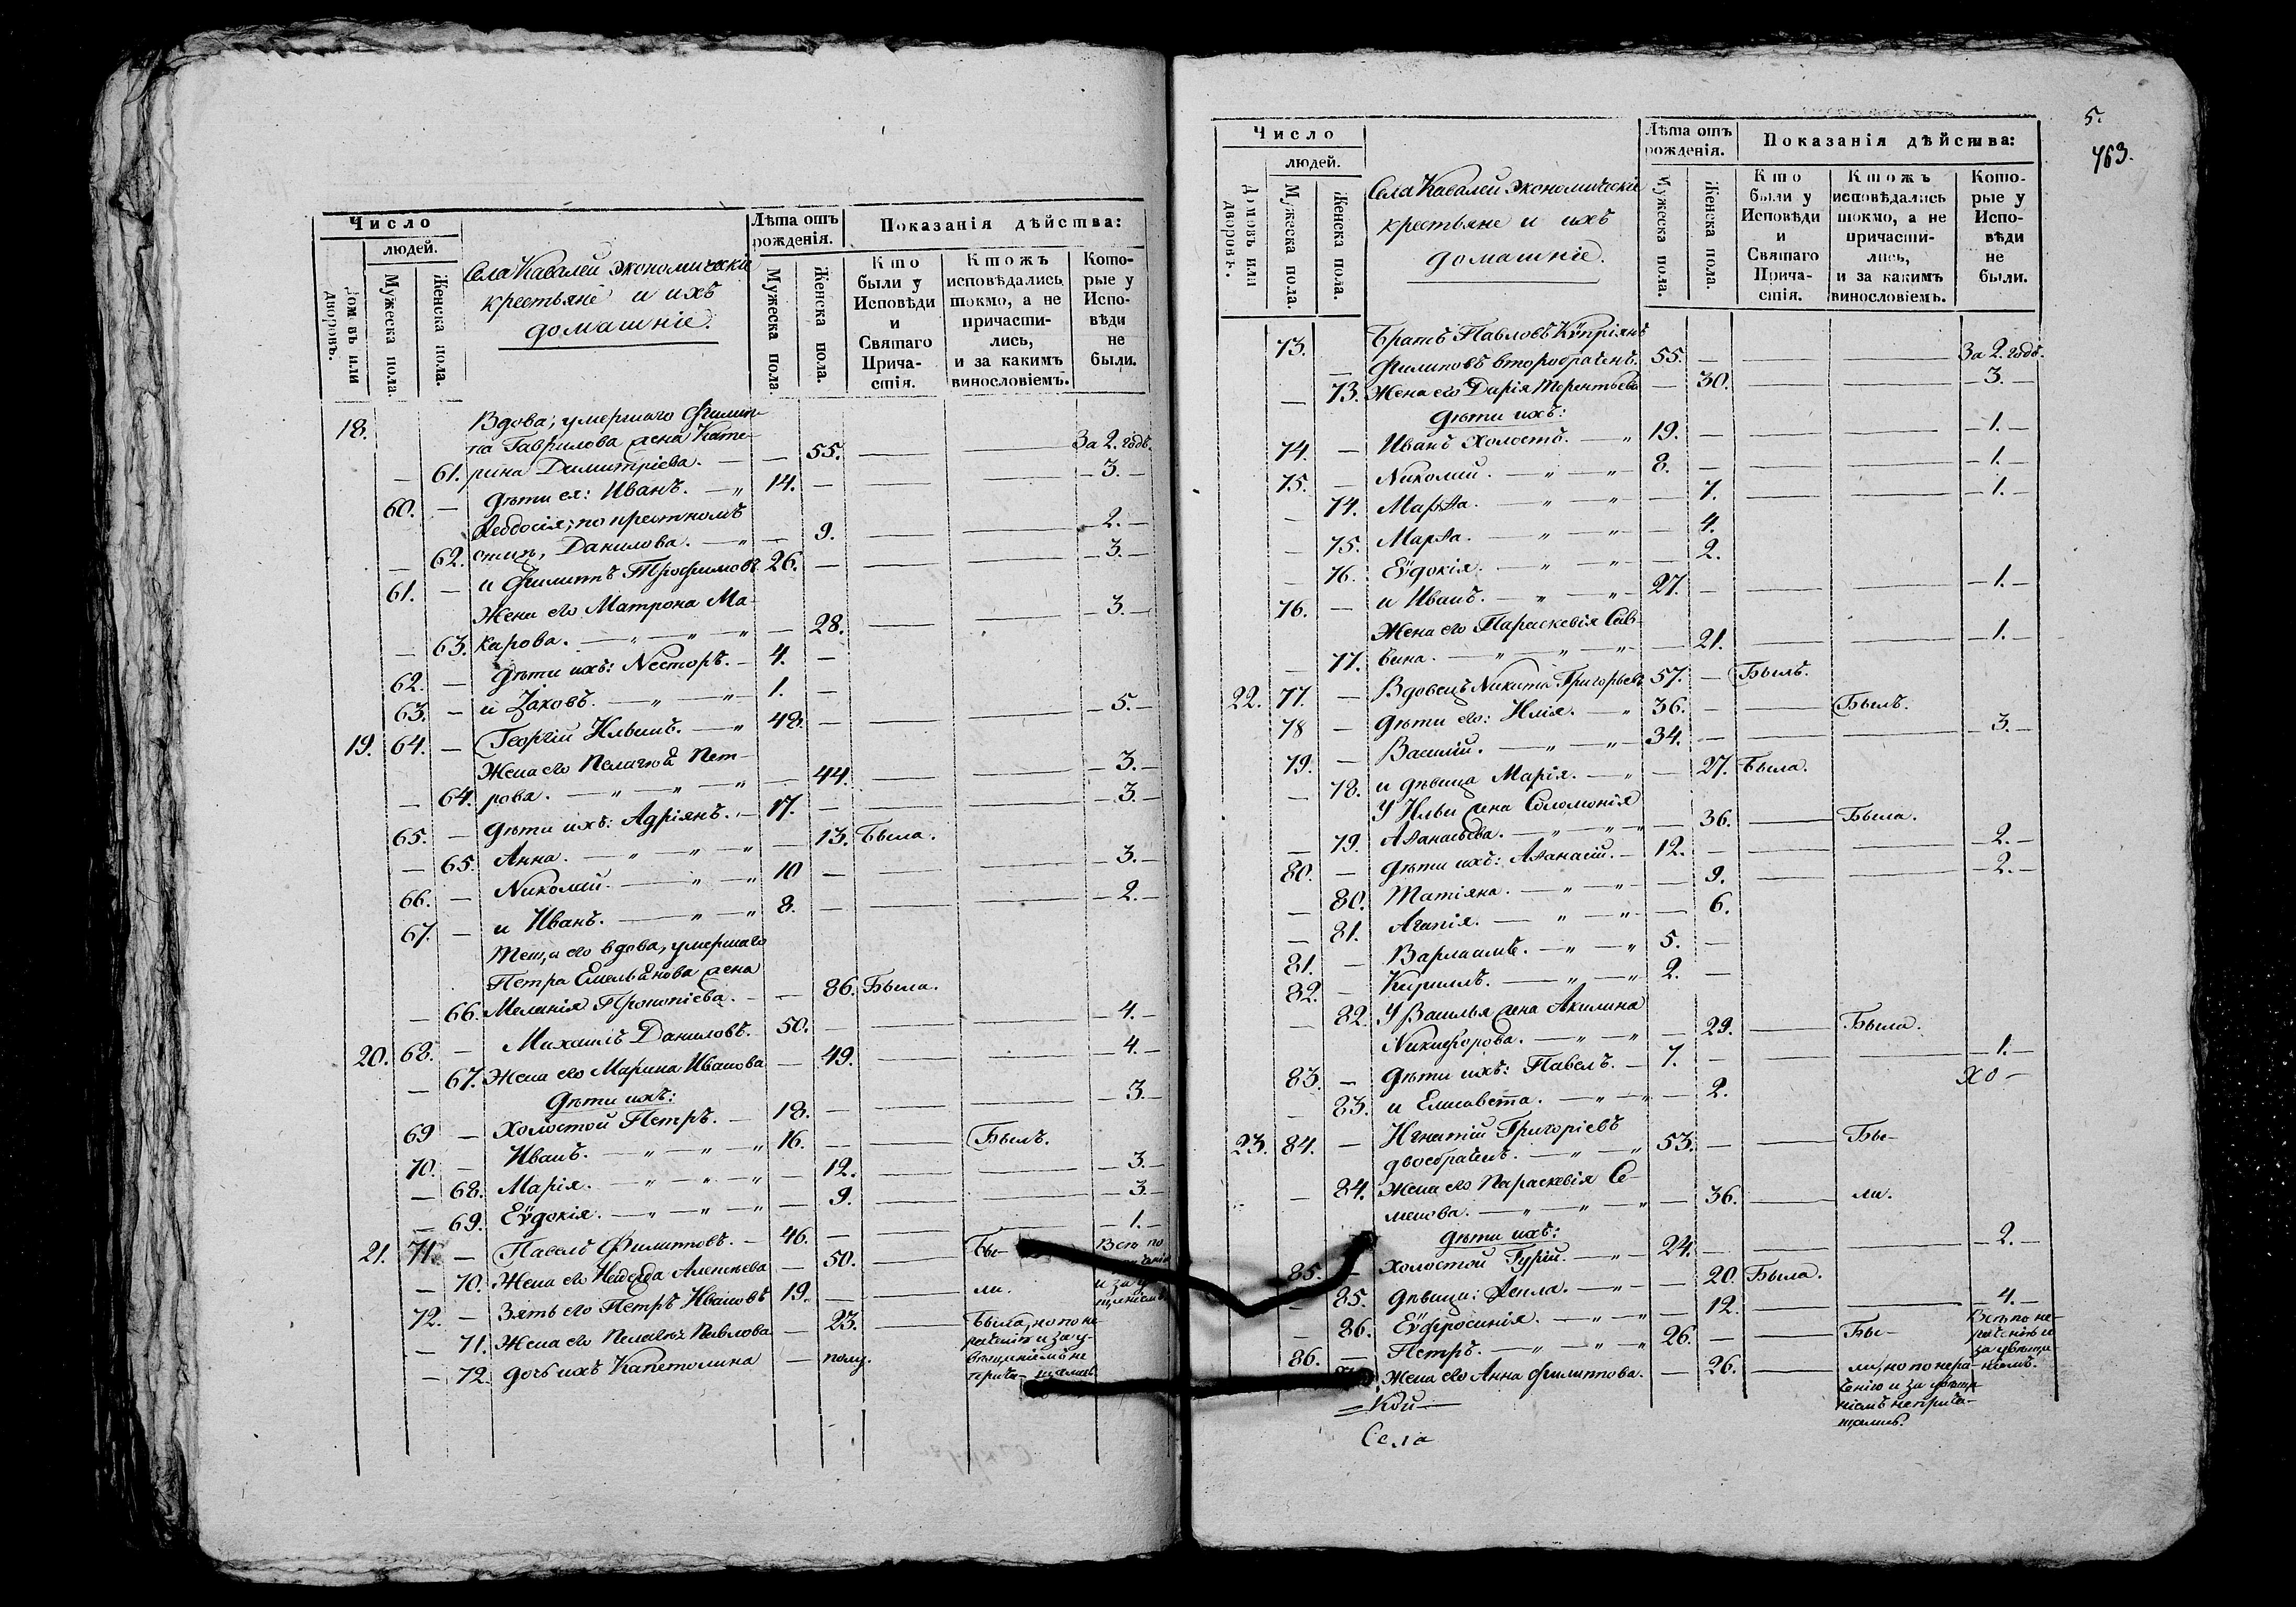 Число
людей.
Домовъ или дворовъ.
Мужеска пола.
Женска пола.
Села Кавалей экономическіе
крестьяне и ихъ
домашніе.
Лѣта отъ рожденія.
Мужеска пола.
Женска пола.
Показанія дѣйства:
Кто были у Исповѣди и Святаго Прича-стія.
Ктожъ исповѣдались токмо, а не причасти-лись, и за какимъ винословіемъ.
Кото-рые у Испо-вѣди не были.
18. Вдова, умершаго Филип-
па Гаврилова жена Кате-
61. рина Димитріева. — 55. За 2. годъ.
60. — Дѣти ея: Иванъ. — 14. — 3.
Ѳеодосія, по крестномъ
62. отцѣ, Данилова. — 9. 2.
61. — и Филиппъ Трофимовъ. 26. — 3.
Жена его Матрона Ма-
63. карова. — 28. 3.
62. — Дѣти ихъ: Несторъ. — 4. —
63. — и Іаковъ. — 1. —
19. 64. — Георгій Ильинъ. — 48. — 5.
Жена его Пелагія Пет-
64. рова. — 44. 3.
65. — Дѣти ихъ: Адріянъ. — 17. — 3.
65. Анна. — 13. Была.
66. — Николай. — 10 — 3.
67. — и Иванъ. — 8. — 2.
Теща его вдова, умершаго
Петра Емельянова жена
66. Меланія Прокопіева. — 86. Была.
20. 68. — Михаилъ Даниловъ. 50. — 4.
67. Жена его Марина Иванова — 49. 4.
Дѣти ихъ:
69 — Холостой Петръ. — 18. — 3.
70. — Иванъ. — 16. — Былъ.
68. Марія. — 12. 3.
69. Еѵдокія. — 9. 3.
21. 71. — Павелъ Филипповъ. — 46. — Бы- 1.
70. Жена его Надежда Алексѣева — 50. ли. Всѣ по
72. — Зять его Петръ Ивановъ 19. —
71. Жена его Пелагія Павлова — 23. Была, но по не-
раченію и за у-
72. дочь ихъ Капетолина — полу. вѣщаніемъ не
5.
463.
Число
людей.
Домовъ или дворовъ.
Мужеска пола.
Женска пола.
Села Кавалей экономическіе
крестьяне и ихъ
домашніе.
Лѣта отъ рожденія.
Мужеска пола.
Женска пола.
Показанія дѣйства:
Кто были у Исповѣди и Святаго Прича-стія.
Ктожъ исповѣдались токмо, а не причасти-лись, и за какимъ винословіемъ.
Кото-рые у Испо-вѣди не были.
73. Братъ Павловъ Кѵпріянъ
— Филиповъ второбраченъ. 55. — За 2. годъ.
73. Жена его Дарія Терентьева — 30. 3.
Дѣти ихъ:
74. — Иванъ холостъ. — 19. — 1.
75. — Николай. — 8. — 1.
74. Марѳа. — 7. 1.
75. Марѳа. — 4.
76. Еѵдокія. — 2.
76. — и Иванъ. — 27. — 1.
Жена его Параскевія Сав-
77. вина. — 21. 1.
22. 77. — Вдовецъ Никита Григорьевъ 57. — Былъ.
78 — Дѣти его: Илія. — 36. — Былъ.
79. — Василій. — 34. — 3.
78. и дѣвица Марія. — 27. Была.
У Ильи жена Соломонія
79. Аѳанасьева. — 36. Была.
80. — Дѣти ихъ: Аѳанасій. — 12. — 2.
80. Татіяна. — 9. 2.
81. Агапія. — 6.
81. — Варлаамъ. — 5. —
82. — Кирилъ. — 2. —
82. У Василья жена Акилина
Никифорова. — 29. Была.
83. — Дѣти ихъ: Павелъ. — 7. — 1.
83. и Елисавета. — 2.
23. 84. — Игнатій Григоріевъ
двоебраченъ. — 53. — Бы-
84. Жена его Параскевія Се-
менова. — 36. ли.
Дѣти ихъ:
85. — Холостой Гурій. — 24. — 2.
85. Дѣвицы: Ѳекла. — 20. Была.
86. Еѵфросинія. — 12. 4.
86. — Петръ. — 26. — Бы- Всѣ по не-
раченію и
за увѣща-
Жена его Анна Филиппова. — 26. ли, но по нера- ніемъ.
ченію и за увѣща-
ніемъ не прича-
щались.
Села